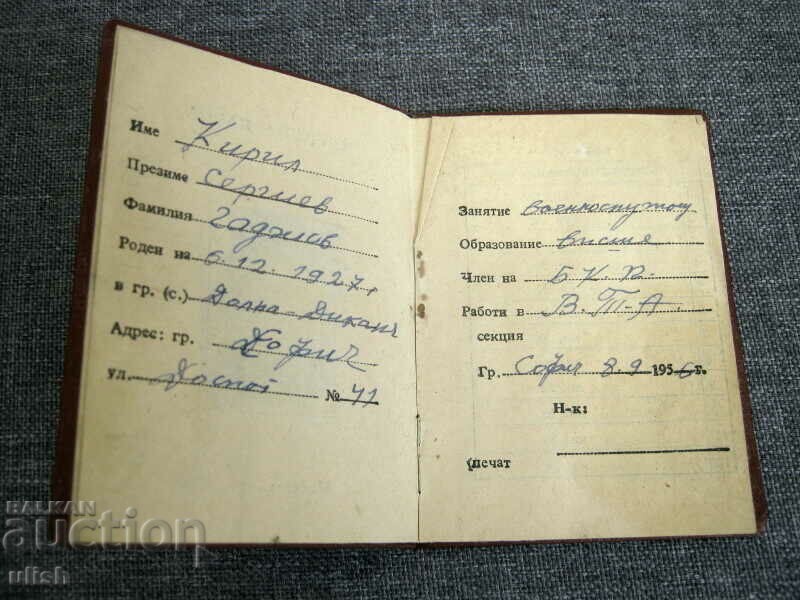 Име Кирил
Презиме Сергиев
Фамилия Гаджов
Роден на 6.12.1927,
в гр. (с.) Долна-Диканя
Адрес: гр. София
ул. Доспат № 41
Занятие
Образование висше
Член на Б.К.П.
Работи в В.Т.А.
секция
Гр. София 8.9 1956 г.
Н-к:
(печат
BALKAN
auction
ulish